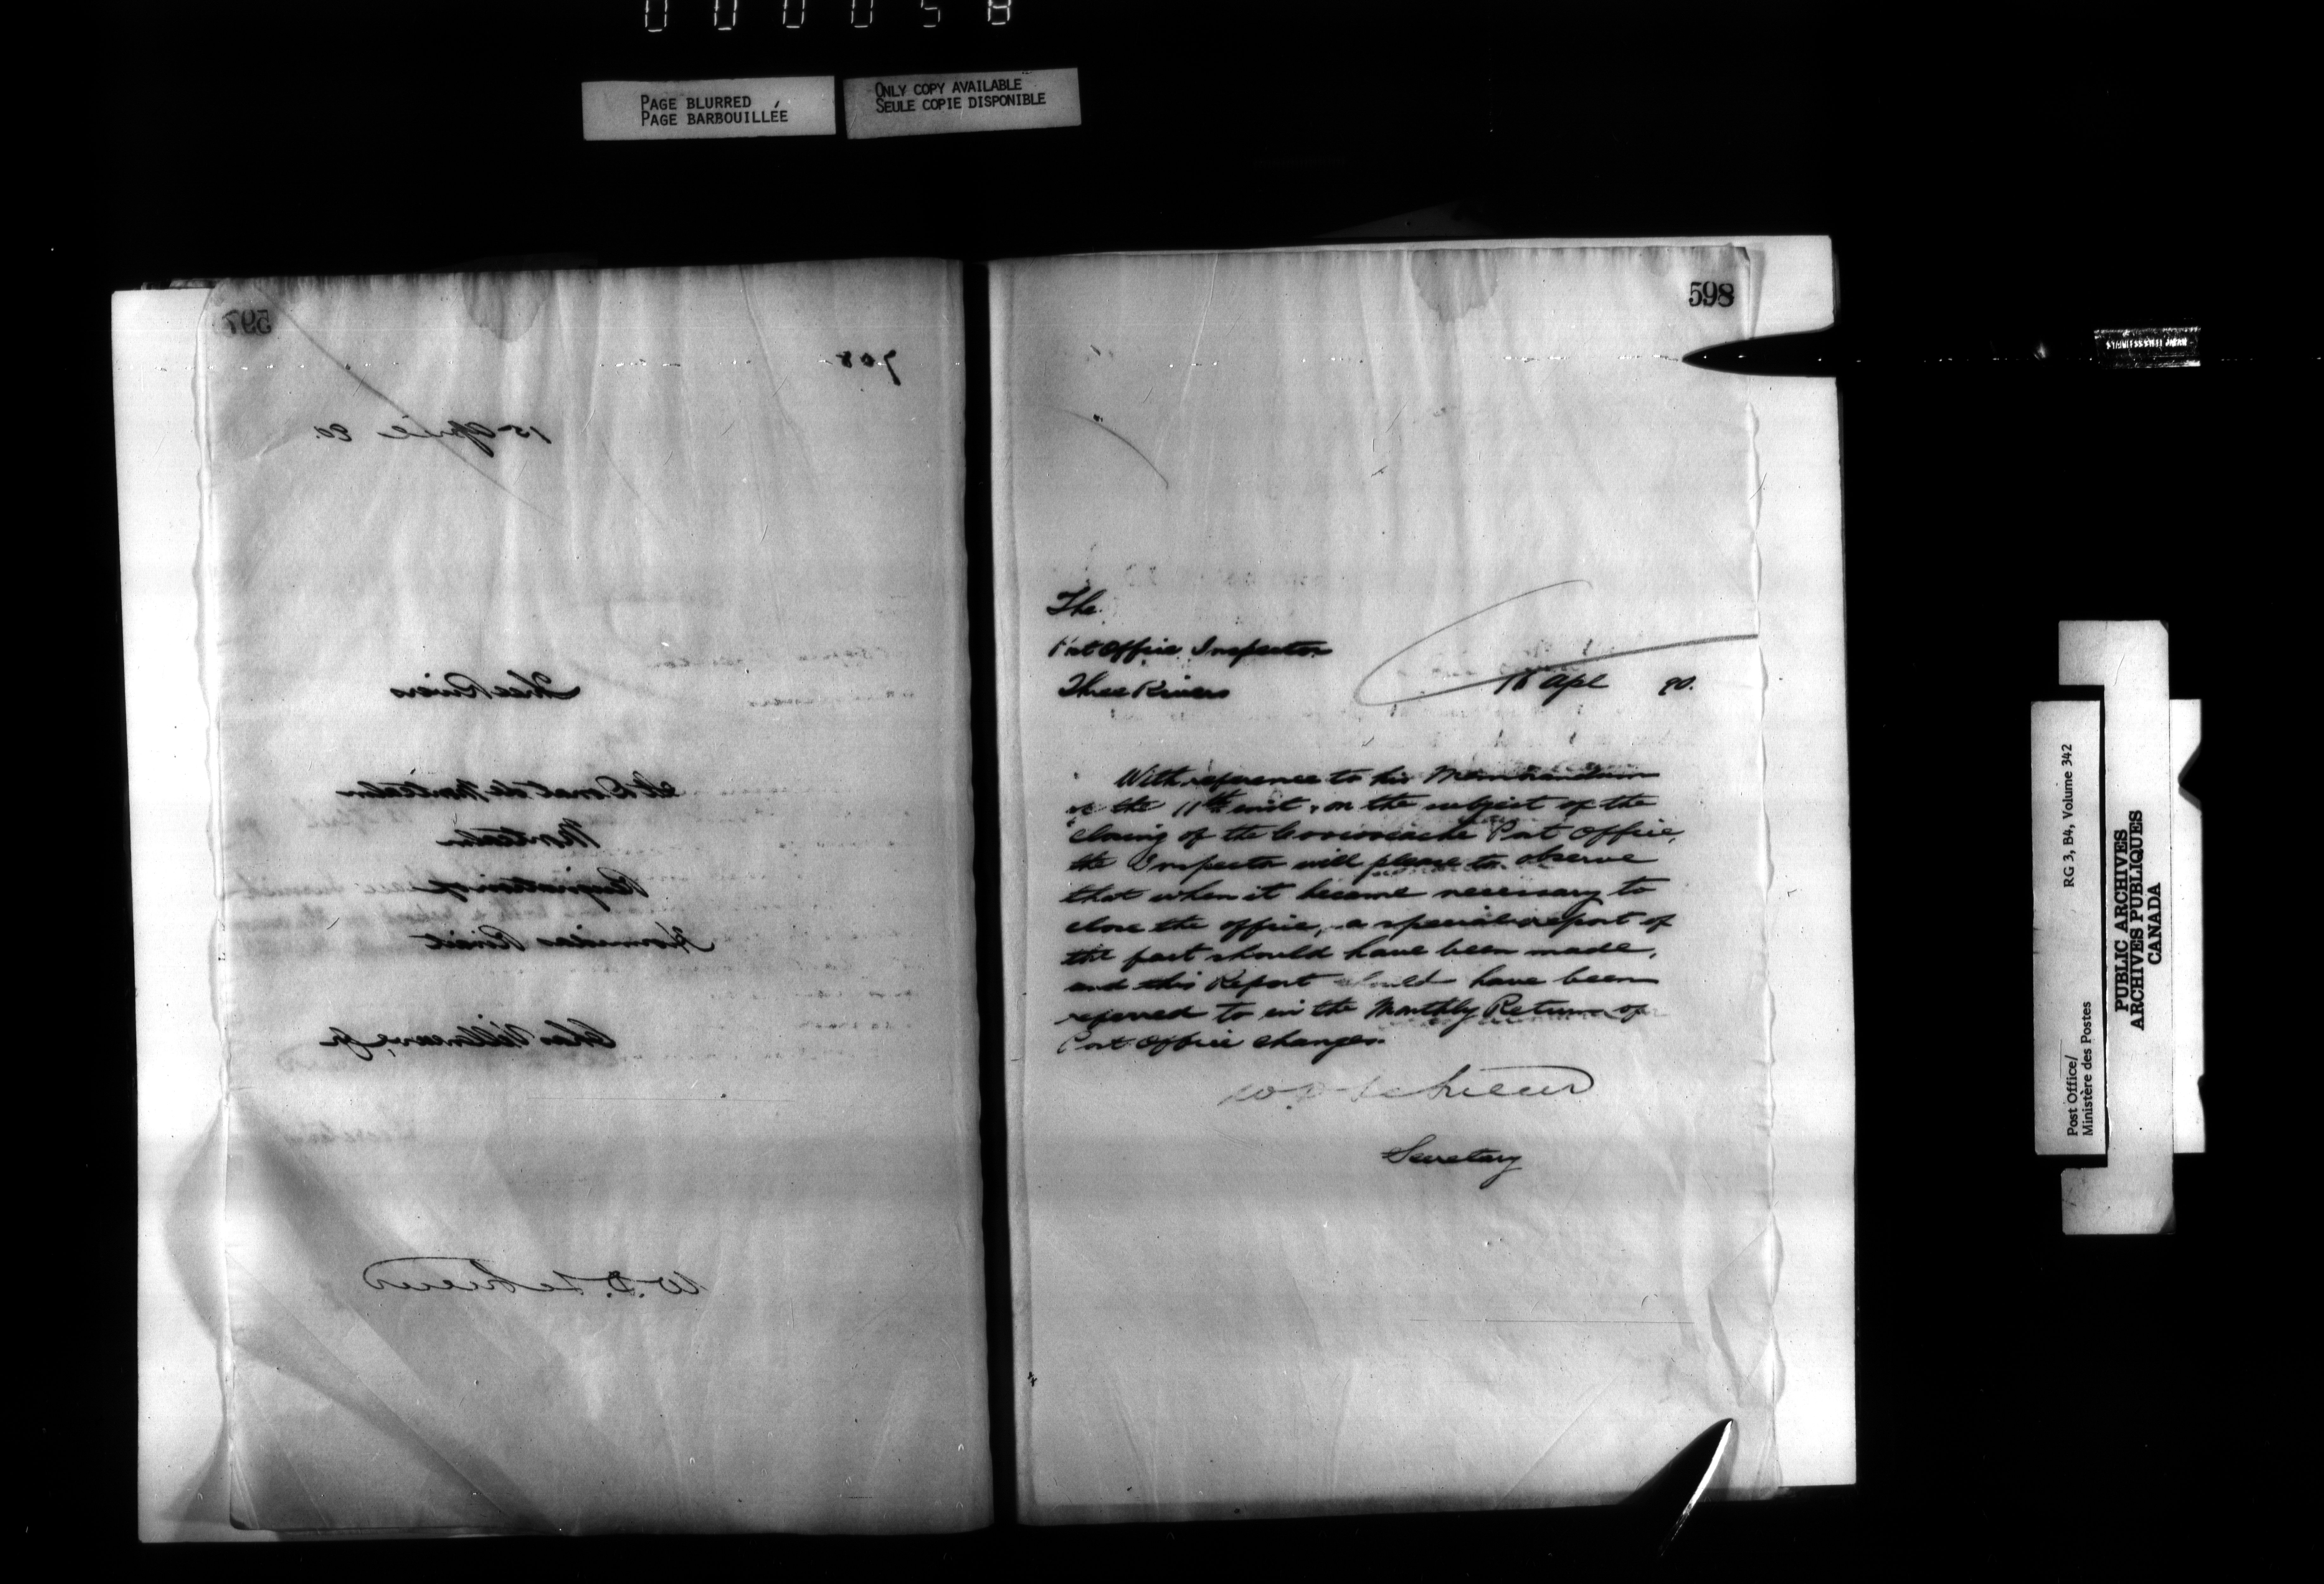 000058
PAGE BLURRED
PAGE BARBOUILLÉE
ONLY COPY AVAILABLE
SEULE COPIE DISPONIBLE
597
708
15 April 90.
Three Rivers
St Donat de Montcalm
Montcalm
Resignation of
Hormidas
Chas Villeneuve Jr
W. D. LeSueur
598
The
Post Office Inspector
Three Rivers
15 Apl 90.
With reference to his Memorandum
of the 11th inst, on the subject of the
closing of the Post Office,
the Inspector will please to observe
that when it became necessary to
close the office, a special report of
the fact should have been made,
and this Report should have been
referred to in the Monthly Return of
Post Office changes.
W. D. LeSueur
Secretary
Post Office/
Ministère des Postes
RG 3, B4, Volume 342
PUBLIC ARCHIVES
ARCHIVES PUBLIQUES
CANADA